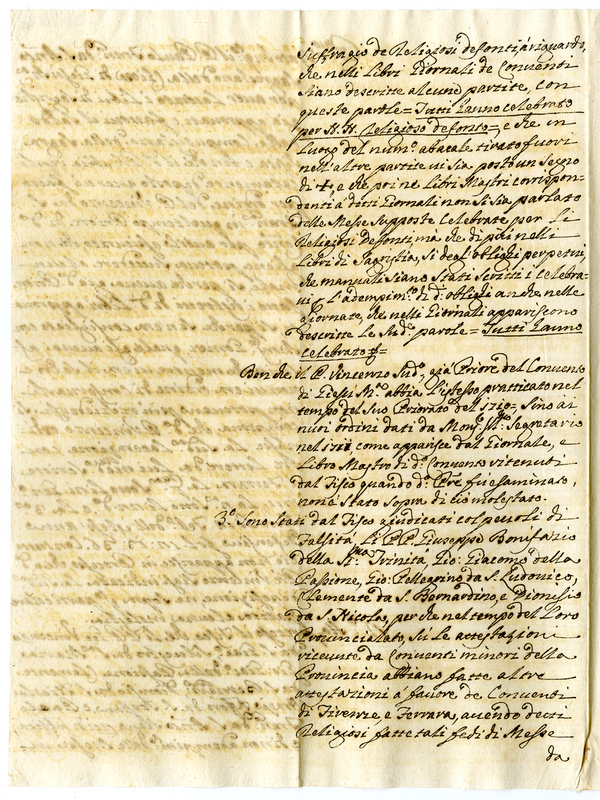 suffragio de Religiosi defonti, à riguardo,
che nelli Libri Giornali de Conventi
siano descritte alcune partite, con
queste parole = Tutti hanno celebrato
per N. N. Religioso defonto =, e che in
luogo del num.º abacale tirato fuori
nell'altre partite vi sia posto un segno
di +, e che poi ne Libri Mastri corrispon-
denti à detti Giornali non si sia parlato
delle Messe supposte celebrate per li
Religiosi defonti, mà che di più nelli
Libri di Sagrestia, sì degl'oblighi perpetui,
che manuali siano stati scritti i celebra-
ti l'adempim.to di d.i oblighi anche nelle
Giornate, che nelli Giornali appariscono
descritte le sud.e parole = Tutti hanno
celebrato =
Ben che il P. Vincenzo sud.º, già Priore del Convento
di Giesù M.a abbia l'istesso pratticato nel
tempo del suo Priorato del 1710 = sino ai
nuovi ordini dati da Mons.r Ill.mo Segretario
nel 1711 come apparisce dal Giornale, e
Libro Mastro di d.º Convento ritenuti
dal Fisco quando d.º Pre fu esaminato,
non è stato sopra di ciò molestato.
3.º Sono stati dal Fisco giudicati colpevoli di
Falsità, li PP. Giuseppe Bonifazio
della SS.ma Trinità, Gio: Giacomo della
Passione, Gio: Pellegrino da S. Ludovico,
Clemente da S. Bernardino, e Dionisio
da S. Nicola, perche nel tempo del loro
Provincialato, sù le attestazioni
ricevute da Conventi minori della
Provincia abbiano fatte altre
attestazioni a favore de Conventi
di Firenze, e Ferrara, avendo detti
Religiosi fatte tali fedi di Messe
da